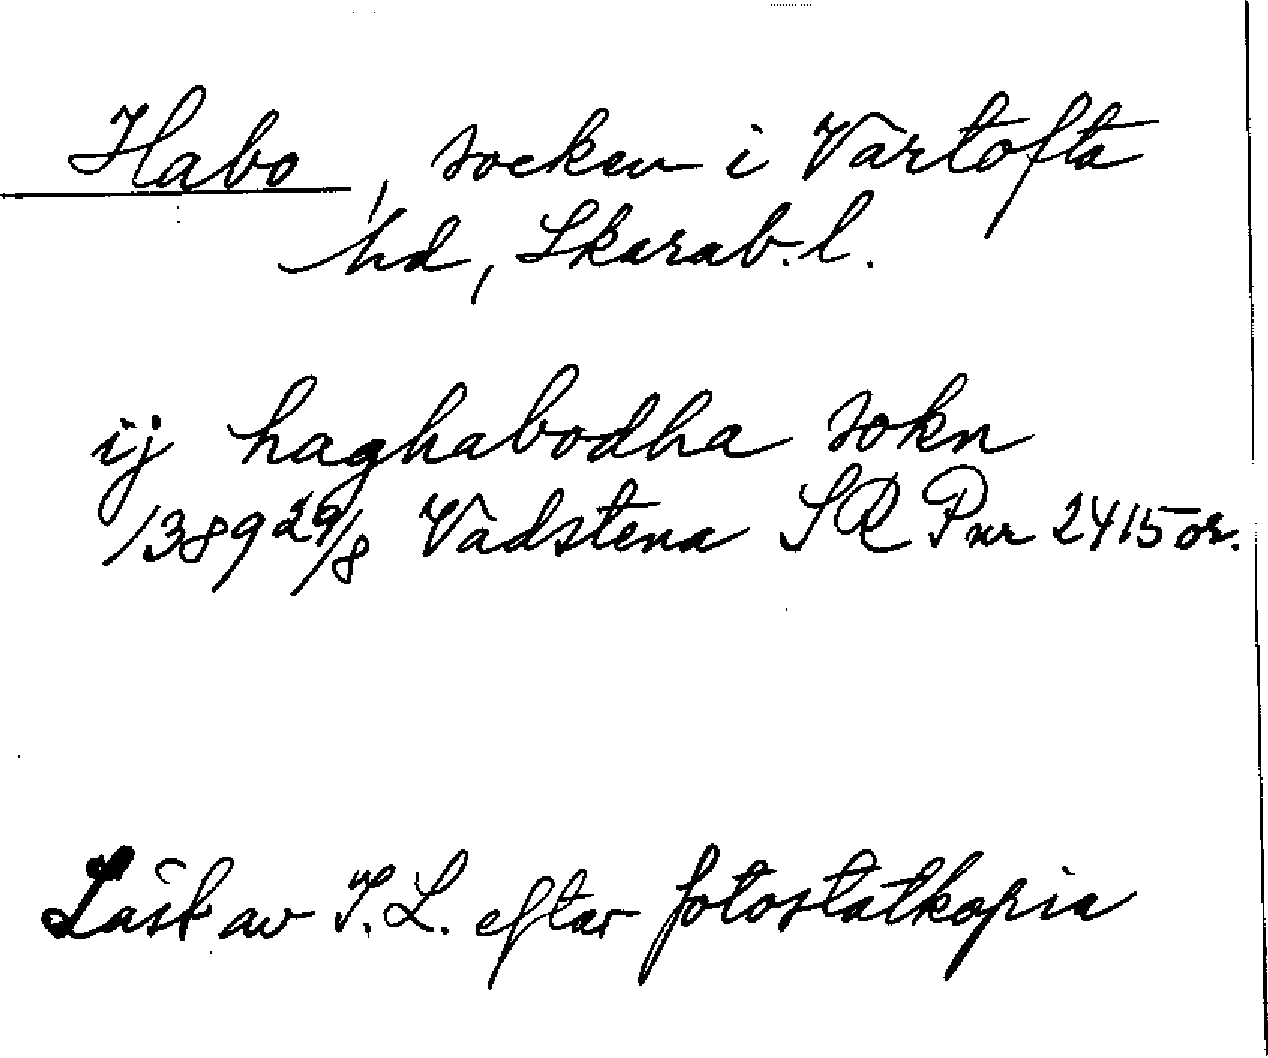 Habo, socken i Vartofta
hd, Skarab.l.
ij haghabodha sokn
1389 29/8 Vadstena SR Pnr 2415 or.
Läst av I.L. efter fotostatkopia